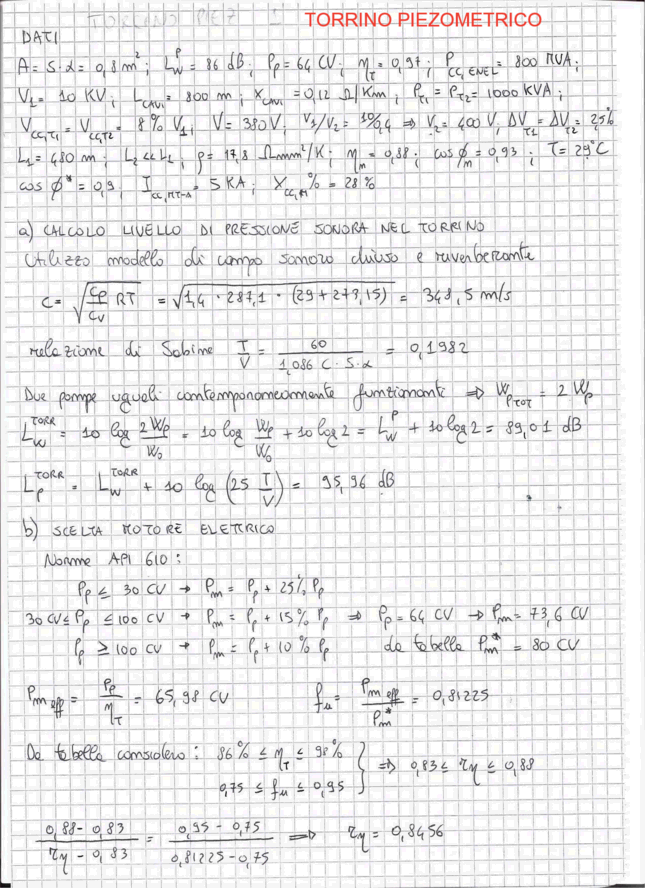 TORRINO PIEZ I
TORRINO PIEZOMETRICO
DATI
A = S·α = 0,8 m²; L_W^P = 86 dB; P_P = 64 CV; η_T = 0,97; P_CC,ENEL = 800 MVA;
V_1 = 10 KV; L_CAVI = 800 m; X_CAVI = 0,12 Ω/Km; P_T1 = P_T2 = 1000 KVA;
V_CC,T1 = V_CC,T2 = 8% V_1; V = 380V; V_1/V_2 = 10/0,4 ⇒ V_2 = 400 V, ΔV_T1 = ΔV_T2 = 2,5%
L_1 = 480 m; L_2 << L_1; ρ = 17,8 Ωmm²/K; η_m = 0,88; cos ϕ_m = 0,93; T = 29°C
cos ϕ* = 0,9; I_CC,MT-A = 5 KA; X_CC,M % = 28%
a) CALCOLO LIVELLO DI PRESSIONE SONORA NEL TORRINO
Utilizzo modello di campo sonoro chiuso e riverberante
C = √(Cp/Cv RT) = √(1,4 · 287,1 · (29+273,15)) = 348,5 m/s
relazione di Sabine T/V = 60/(1,086 C·S·α) = 0,1982
Due pompe uguali contemporaneamente funzionanti ⇒ W_PTOT = 2 W_P
L_W^TORR = 10 log 2W_P/W_0 = 10 log W_P/W_0 + 10 log 2 = L_W^P + 10 log 2 = 89,01 dB
L_P^TORR = L_W^TORR + 10 log (25 T/V) = 95,96 dB
b) SCELTA MOTORE ELETTRICO
Norme API 610:
P_P ≤ 30 CV → P_m = P_P + 25% P_P
30 CV ≤ P_P ≤ 100 CV → P_m = P_P + 15% P_P ⇒ P_P = 64 CV → P_m = 73,6 CV
P_P ≥ 100 CV → P_m = P_P + 10% P_P da tabella P_m* = 80 CV
P_m eff = P_P/η_T = 65,98 CV f_u = P_m eff/P_m* = 0,81225
Da tabella considero: 86% ≤ η_T ≤ 98%
0,75 ≤ f_u ≤ 0,95 } ⇒ 0,83 ≤ τη ≤ 0,88
(0,88-0,83)/(τη - 0,83) = (0,95-0,75)/(0,81225-0,75) ⇒ τη = 0,8456